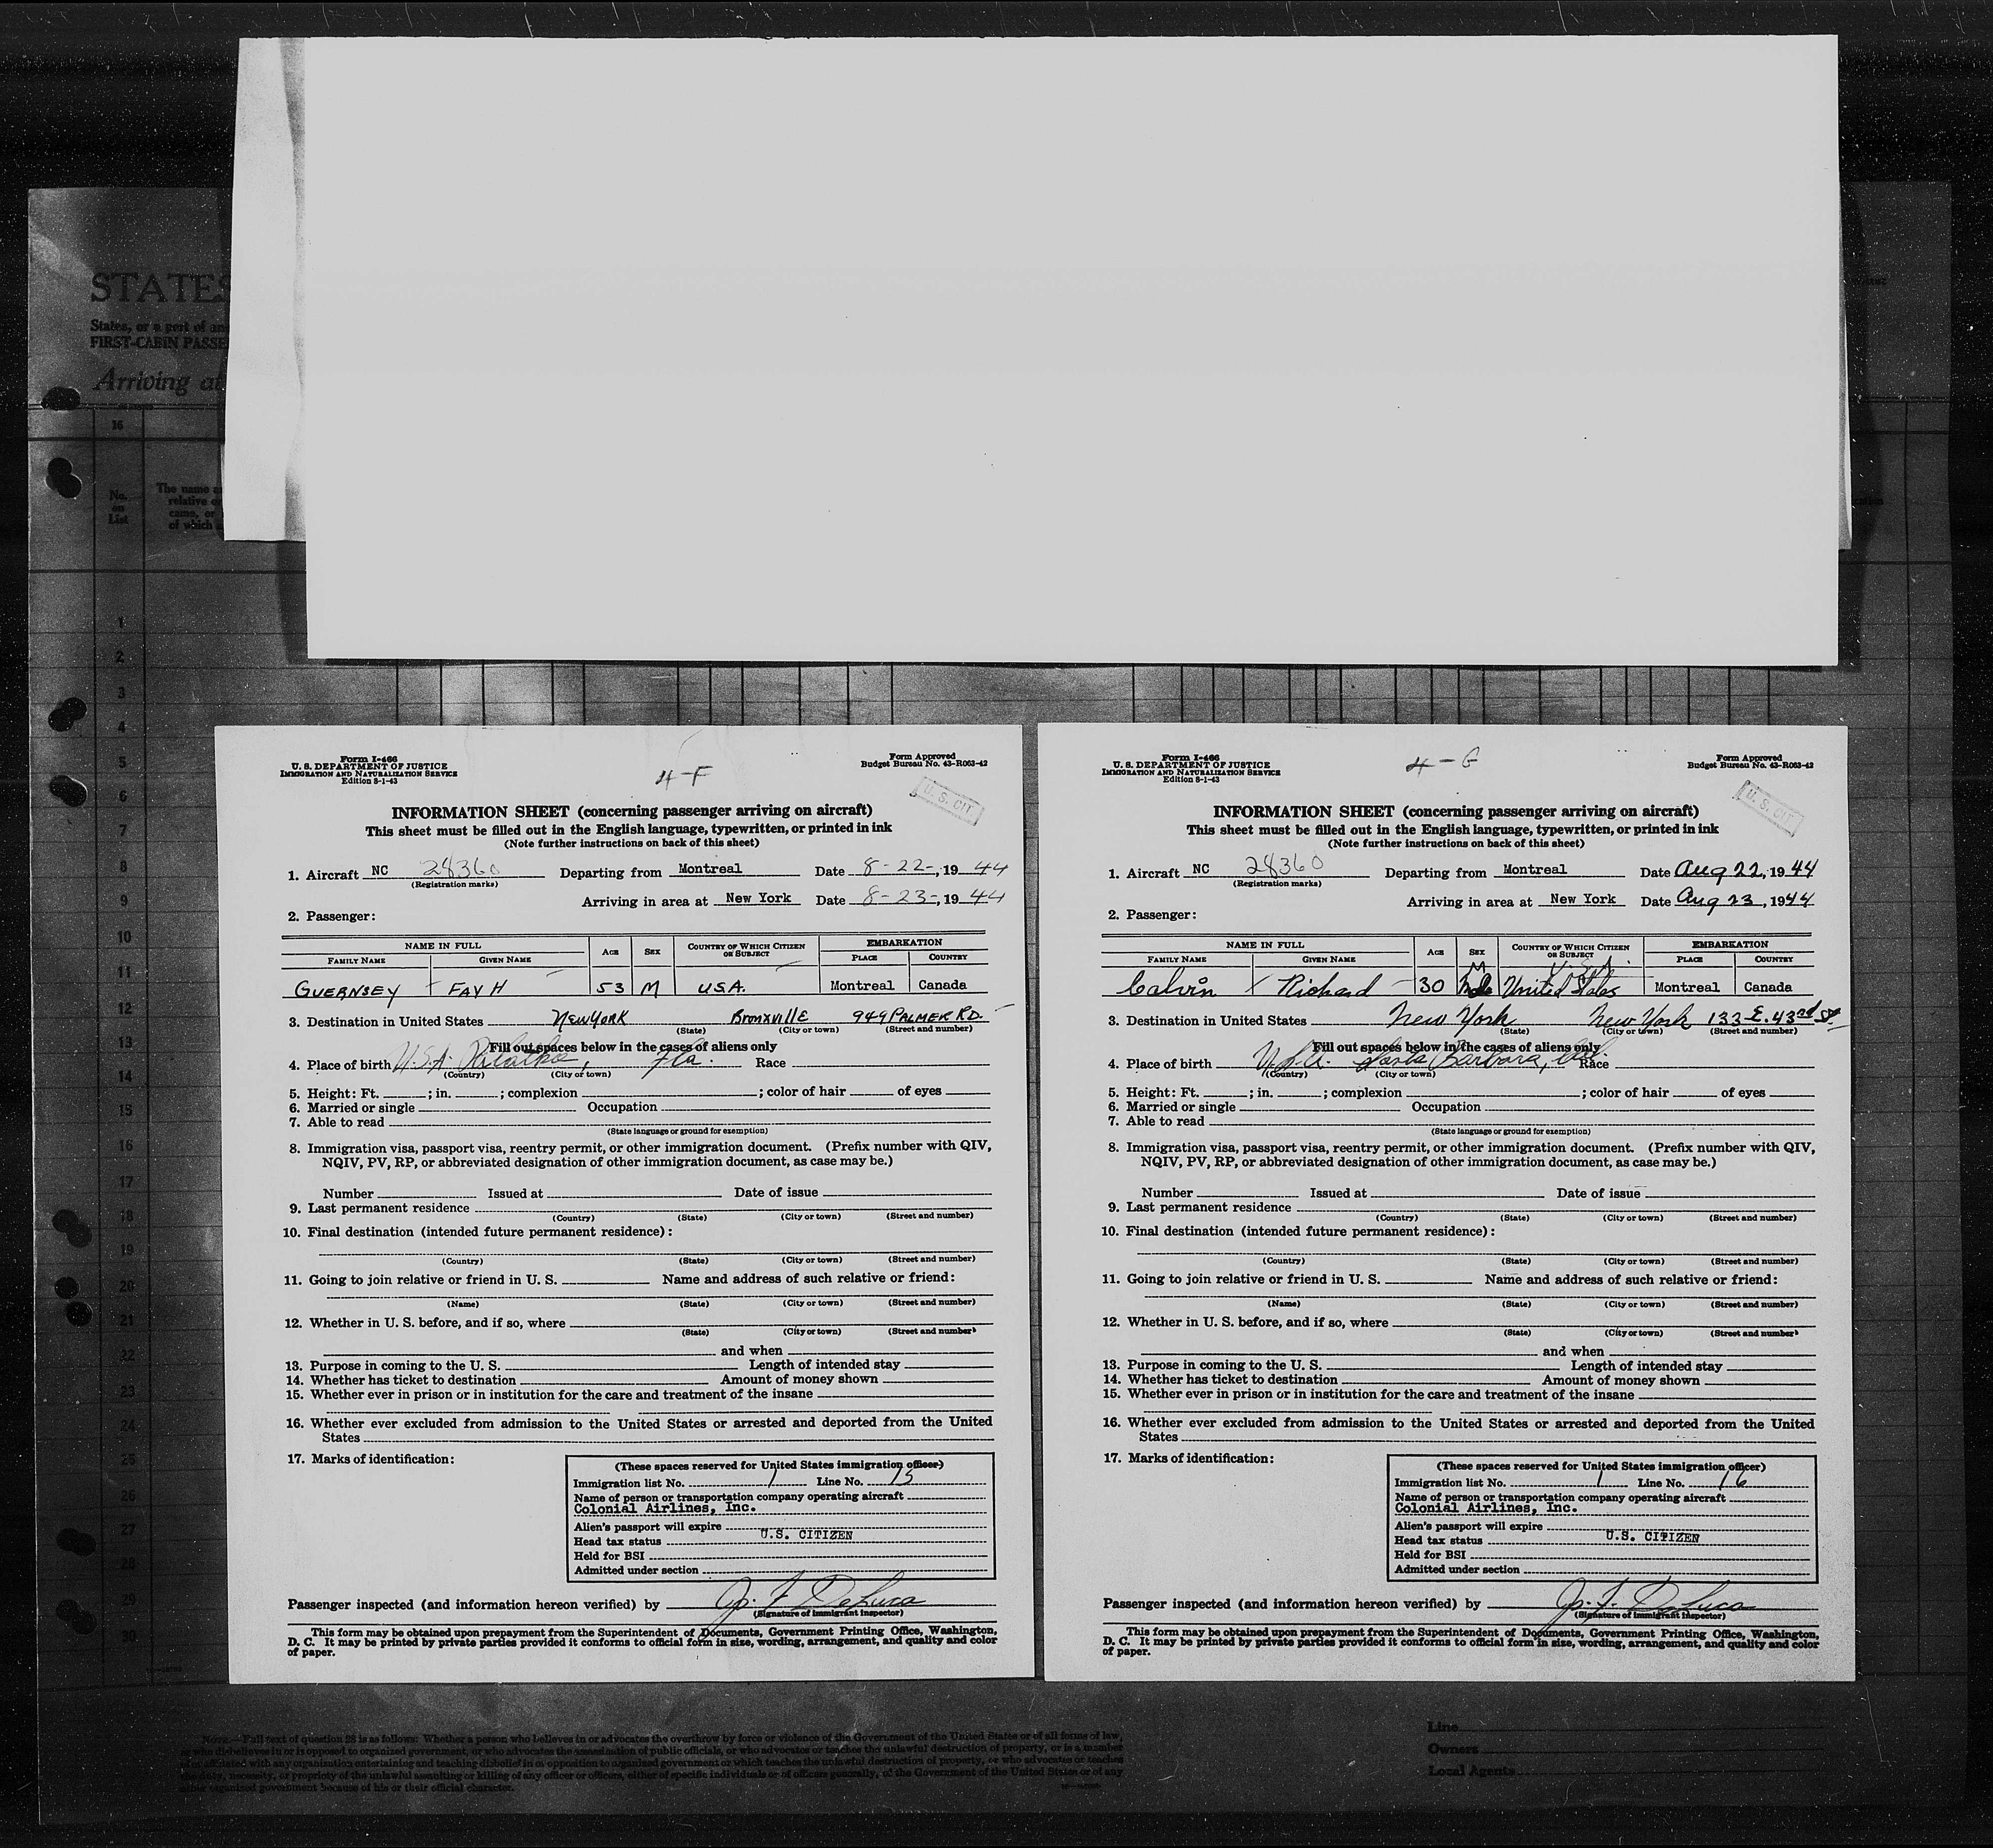 STATES
States, or a port of an
FIRST-CABIN PASSE
Arriving at
16
No.
on
List
The name a
relative o
came, or
of which
1
2
3
4
5
6
7
8
9
10
11
12
13
14
15
16
17
18
19
20
21
22
23
24
25
26
27
28
29
30
Form I-466
U. S. DEPARTMENT OF JUSTICE
IMMIGRATION AND NATURALIZATION SERVICE
Edition 8-1-43
4-F
Form Approved
Budget Bureau No. 43-R063-42
U. S. CIT.
INFORMATION SHEET (concerning passenger arriving on aircraft)
This sheet must be filled out in the English language, typewritten, or printed in ink
(Note further instructions on back of this sheet)
1. Aircraft NC 28360 Departing from Montreal Date 8-22-, 19 44
(Registration marks)
Arriving in area at New York Date 8-23-, 19 44
2. Passenger:
NAME IN FULL AGE SEX COUNTRY OF WHICH CITIZEN OR SUBJECT EMBARKATION
FAMILY NAME GIVEN NAME PLACE COUNTRY
GUERNSEY FAY H 53 M U.S.A. Montreal Canada
3. Destination in United States NEW YORK BRONXVILLE 949 PALMER RD.
(State) (City or town) (Street and number)
Fill out spaces below in the cases of aliens only
4. Place of birth U.S.A. Palatka, Fla. Race
(Country) (City or town)
5. Height: Ft. ; in. ; complexion ; color of hair of eyes
6. Married or single Occupation
7. Able to read
(State language or ground for exemption)
8. Immigration visa, passport visa, reentry permit, or other immigration document. (Prefix number with QIV,
NQIV, PV, RP, or abbreviated designation of other immigration document, as case may be.)
Number Issued at Date of issue
9. Last permanent residence
(Country) (State) (City or town) (Street and number)
10. Final destination (intended future permanent residence):
(Country) (State) (City or town) (Street and number)
11. Going to join relative or friend in U. S. Name and address of such relative or friend:
(Name) (State) (City or town) (Street and number)
12. Whether in U. S. before, and if so, where
(State) (City or town) (Street and number)
and when
13. Purpose in coming to the U. S. Length of intended stay
14. Whether has ticket to destination Amount of money shown
15. Whether ever in prison or in institution for the care and treatment of the insane
16. Whether ever excluded from admission to the United States or arrested and deported from the United
States
17. Marks of identification:
(These spaces reserved for United States immigration officer)
Immigration list No. 1 Line No. 15
Name of person or transportation company operating aircraft
Colonial Airlines, Inc.
Alien's passport will expire
U.S. CITIZEN
Head tax status
Held for BSI
Admitted under section
Passenger inspected (and information hereon verified) by Jos. F. DeLuca
(Signature of immigrant inspector)
This form may be obtained upon prepayment from the Superintendent of Documents, Government Printing Office, Washington,
D. C. It may be printed by private parties provided it conforms to official form in size, wording, arrangement, and quality and color
of paper.
Form I-466
U. S. DEPARTMENT OF JUSTICE
IMMIGRATION AND NATURALIZATION SERVICE
Edition 8-1-43
4-G
Form Approved
Budget Bureau No. 43-R063-42
U. S. CIT.
INFORMATION SHEET (concerning passenger arriving on aircraft)
This sheet must be filled out in the English language, typewritten, or printed in ink
(Note further instructions on back of this sheet)
1. Aircraft NC 28360 Departing from Montreal Date Aug 22, 19 44
(Registration marks)
Arriving in area at New York Date Aug 23, 19 44
2. Passenger:
NAME IN FULL AGE SEX COUNTRY OF WHICH CITIZEN OR SUBJECT EMBARKATION
FAMILY NAME GIVEN NAME PLACE COUNTRY
M U.S.A.
Calvin Richard 30 Male United States Montreal Canada
3. Destination in United States New York New York 133 E. 43rd St.
(State) (City or town) (Street and number)
Fill out spaces below in the cases of aliens only
4. Place of birth U.S.A. Santa Barbara, Cal. Race
(Country) (City or town)
5. Height: Ft. ; in. ; complexion ; color of hair of eyes
6. Married or single Occupation
7. Able to read
(State language or ground for exemption)
8. Immigration visa, passport visa, reentry permit, or other immigration document. (Prefix number with QIV,
NQIV, PV, RP, or abbreviated designation of other immigration document, as case may be.)
Number Issued at Date of issue
9. Last permanent residence
(Country) (State) (City or town) (Street and number)
10. Final destination (intended future permanent residence):
(Country) (State) (City or town) (Street and number)
11. Going to join relative or friend in U. S. Name and address of such relative or friend:
(Name) (State) (City or town) (Street and number)
12. Whether in U. S. before, and if so, where
(State) (City or town) (Street and number)
and when
13. Purpose in coming to the U. S. Length of intended stay
14. Whether has ticket to destination Amount of money shown
15. Whether ever in prison or in institution for the care and treatment of the insane
16. Whether ever excluded from admission to the United States or arrested and deported from the United
States
17. Marks of identification:
(These spaces reserved for United States immigration officer)
Immigration list No. 1 Line No. 16
Name of person or transportation company operating aircraft
Colonial Airlines, Inc.
Alien's passport will expire
U.S. CITIZEN
Head tax status
Held for BSI
Admitted under section
Passenger inspected (and information hereon verified) by Jos. F. DeLuca
(Signature of immigrant inspector)
This form may be obtained upon prepayment from the Superintendent of Documents, Government Printing Office, Washington,
D. C. It may be printed by private parties provided it conforms to official form in size, wording, arrangement, and quality and color
of paper.
NOTE.—Full text of question 28 is as follows: Whether a person who believes in or advocates the overthrow by force or violence of the Government of the United States or of all forms of law,
or who disbelieves in or is opposed to organized government, or who advocates the assassination of public officials, or who advocates or teaches the unlawful destruction of property, or is a member
of or affiliated with any organization entertaining and teaching disbelief in or opposition to organized government or which teaches the unlawful destruction of property, or who advocates or teaches
the duty, necessity, or propriety of the unlawful assaulting or killing of any officer or officers, either of specific individuals or of officers generally, of the Government of the United States or of any
other organized government because of his or their official character.
Line
Owners
Local Agents